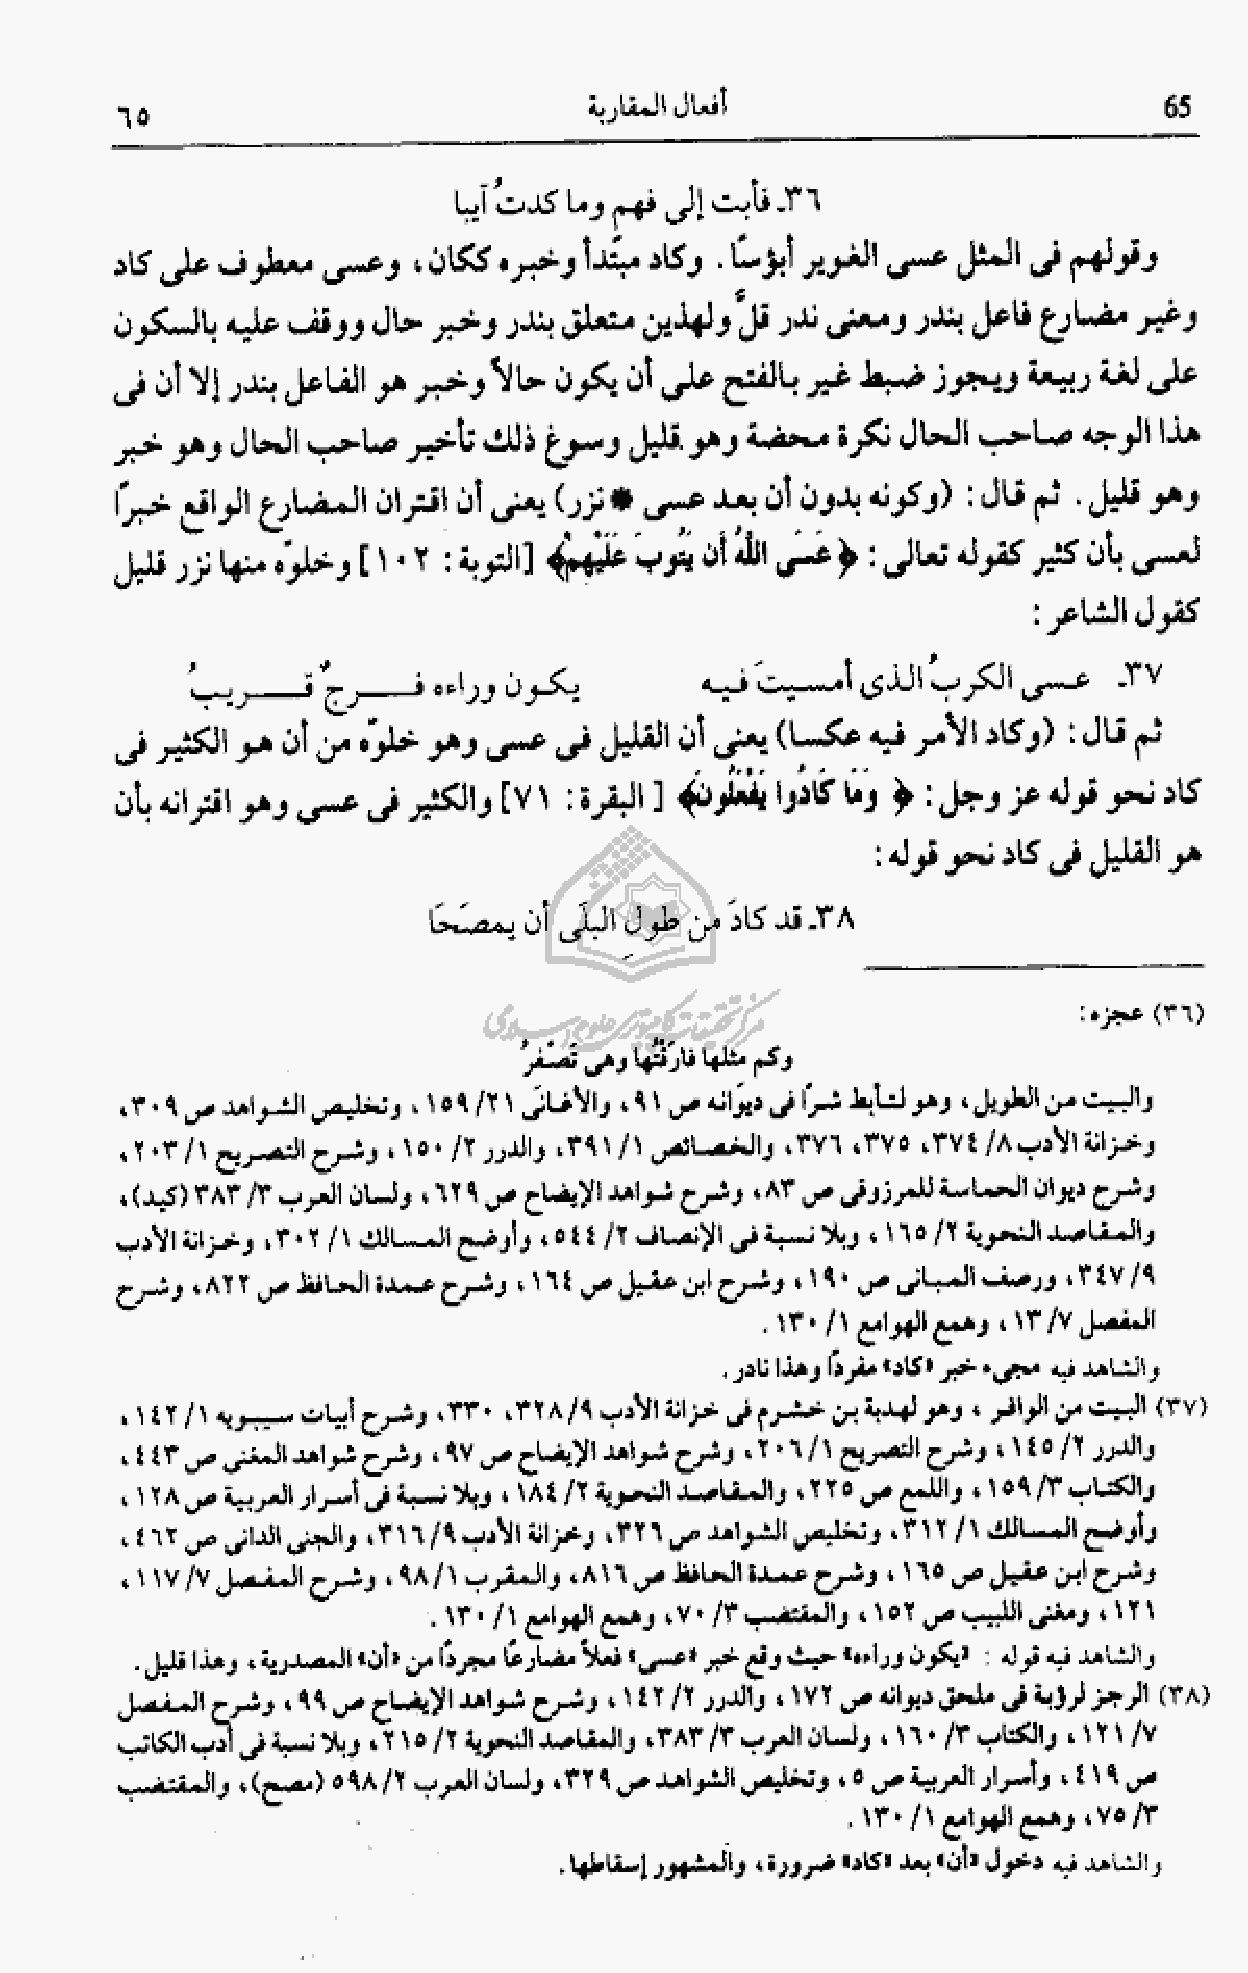 65
أفعال المقاربة
٦٥
٣٦ـ فأبت إلى فهم وما كدتُ آيبا
وقولهم فى المثل عسى الغوير أبؤساً . وكاد مبتدأ وخبره ككان ، وعسى معطوف على كاد
وغير مضارع فاعل بندر ومعنى ندر قلَّ ولهذين متعلق بندر وخبر حال ووقف عليه بالسكون
على لغة ربيعة ويجوز ضبط غير بالفتح على أن يكون حالاً وخبر هو الفاعل بندر إلا أن فى
هذا الوجه صاحب الحال نكرة محضة وهو قليل وسوغ ذلك تأخير صاحب الحال وهو خبر
وهو قليل . ثم قال : (وكونه بدون أن بعد عسى * نزر) يعنى أن اقتران المضارع الواقع خبراً
لعسى بأن كثير كقوله تعالى : ﴿ عَسَى اللَّهُ أَن يَتُوبَ عَلَيْهِمْ﴾ [التوبة : ١٠٢] وخلوّه منها نزر قليل
كقول الشاعر :
٣٧ـ عسى الكربُ الذى أمسيتَ فيه يكون وراءه فرجٌ قريبُ
ثم قال : (وكاد الأمر فيه عكسا) يعنى أن القليل فى عسى وهو خلوّه من أن هو الكثير فى
كاد نحو قوله عز وجل : ﴿ وَمَا كَادُوا يَفْعَلُونَ﴾ [ البقرة : ٧١] والكثير فى عسى وهو اقترانه بأن
هو القليل فى كاد نحو قوله :
٣٨ـ قد كادَ من طولِ البلَى أن يمصَحَا
مركز تحقيقات كامپيوتری علوم اسلامی
(٣٦) عجزه :
وكم مثلها فارَقْتُها وهى تَصْفرُ
والبيت من الطويل ، وهو لتأبط شراً فى ديوانه ص ٩١ ، والأغانى ٢١/ ١٥٩ ، وتخليص الشواهد ص ٣٠٩ ،
وخزانة الأدب ٨/ ٣٧٤ ، ٣٧٥ ، ٣٧٦ ، والخصائص ١/ ٣٩١ ، والدرر ٢/ ١٥٠ ، وشرح التصريح ١/ ٢٠٣ ،
وشرح ديوان الحماسة للمرزوقى ص ٨٣ ، وشرح شواهد الإيضاح ص ٦٢٩ ، ولسان العرب ٣/ ٣٨٣ (كيد) ،
والمقاصد النحوية ٢/ ١٦٥ ، وبلا نسبة فى الإنصاف ٢/ ٥٤٤ ، وأوضح المسالك ١/ ٣٠٢ ، وخزانة الأدب
٩/ ٣٤٧ ، ورصف المبانى ص ١٩٠ ، وشرح ابن عقيل ص ١٦٤ ، وشرح عمدة الحافظ ص ٨٢٢ ، وشرح
المفصل ٧/ ١٣ ، وهمع الهوامع ١/ ١٣٠ .
والشاهد فيه مجىء خبر «كاد» مفرداً وهذا نادر .
(٣٧) البيت من الوافر ، وهو لهدبة بن خشرم فى خزانة الأدب ٩/ ٣٢٨ ، ٣٣٠ ، وشرح أبيات سيبويه ١/ ١٤٢ ،
والدرر ٢/ ١٤٥ ، وشرح التصريح ١/ ٢٠٦ ، وشرح شواهد الإيضاح ص ٩٧ ، وشرح شواهد المغنى ص ٤٤٣ ،
والكتاب ٣/ ١٥٩ ، واللمع ص ٢٢٥ ، والمقاصد النحوية ٢/ ١٨٤ ، وبلا نسبة فى أسرار العربية ص ١٢٨ ،
وأوضح المسالك ١/ ٣١٢ ، وتخليص الشواهد ص ٣٢٦ ، وخزانة الأدب ٩/ ٣١٦ ، والجنى الدانى ص ٤٦٢ ،
وشرح ابن عقيل ص ١٦٥ ، وشرح عمدة الحافظ ص ٨١٦ ، والمقرب ١/ ٩٨ ، وشرح المفصل ٧/ ١١٧ ،
١٢١ ، ومغنى اللبيب ص ١٥٢ ، والمقتضب ٣/ ٧٠ ، وهمع الهوامع ١/ ١٣٠ .
والشاهد فيه قوله : «يكون وراءه» حيث وقع خبر «عسى» فعلاً مضارعاً مجرداً من «أن» المصدرية ، وهذا قليل .
(٣٨) الرجز لرؤبة فى ملحق ديوانه ص ١٧٢ ، والدرر ٢/ ١٤٢ ، وشرح شواهد الإيضاح ص ٩٩ ، وشرح المفصل
٧/ ١٢١ ، والكتاب ٣/ ١٦٠ ، ولسان العرب ٣/ ٣٨٣ ، والمقاصد النحوية ٢/ ٢١٥ ، وبلا نسبة فى أدب الكاتب
ص ٤١٩ ، وأسرار العربية ص ٥ ، وتخليص الشواهد ص ٣٢٩ ، ولسان العرب ٢/ ٥٩٨ (مصح) ، والمقتضب
٣/ ٧٥ ، وهمع الهوامع ١/ ١٣٠ .
والشاهد فيه دخول «أن» بعد «كاد» ضرورة ، والمشهور إسقاطها .